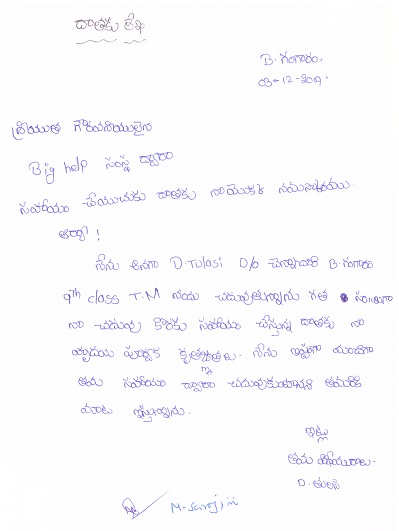 దాతకు లేఖ
B. గంగారం,
03-12-2019.
శ్రీయుత గౌరవనీయులైన
Big help సంస్థ ద్వారా
సహాయం చేయుచుకు దాతకు నాయొక్క నమస్కారములు
ఆర్యా !
నేను అనగా D. Tulasi D/o చెన్నాచారి B. గంగారం
9th class T.M నందు చదువుతున్నాను గత
నా చదువు కొరకు సహాయం చేస్తున్న దాతకు నా
హృదయ పూర్వక కృతజ్ఞతలు. నేను ఇష్టంగా
తమ సహాయం ద్వారా చదువుకుంటానని తమరికి
మాట ఇస్తున్నాను.
ఇట్లు
తమ విధేయురాలు.
D. తులసి
M. Sarojini